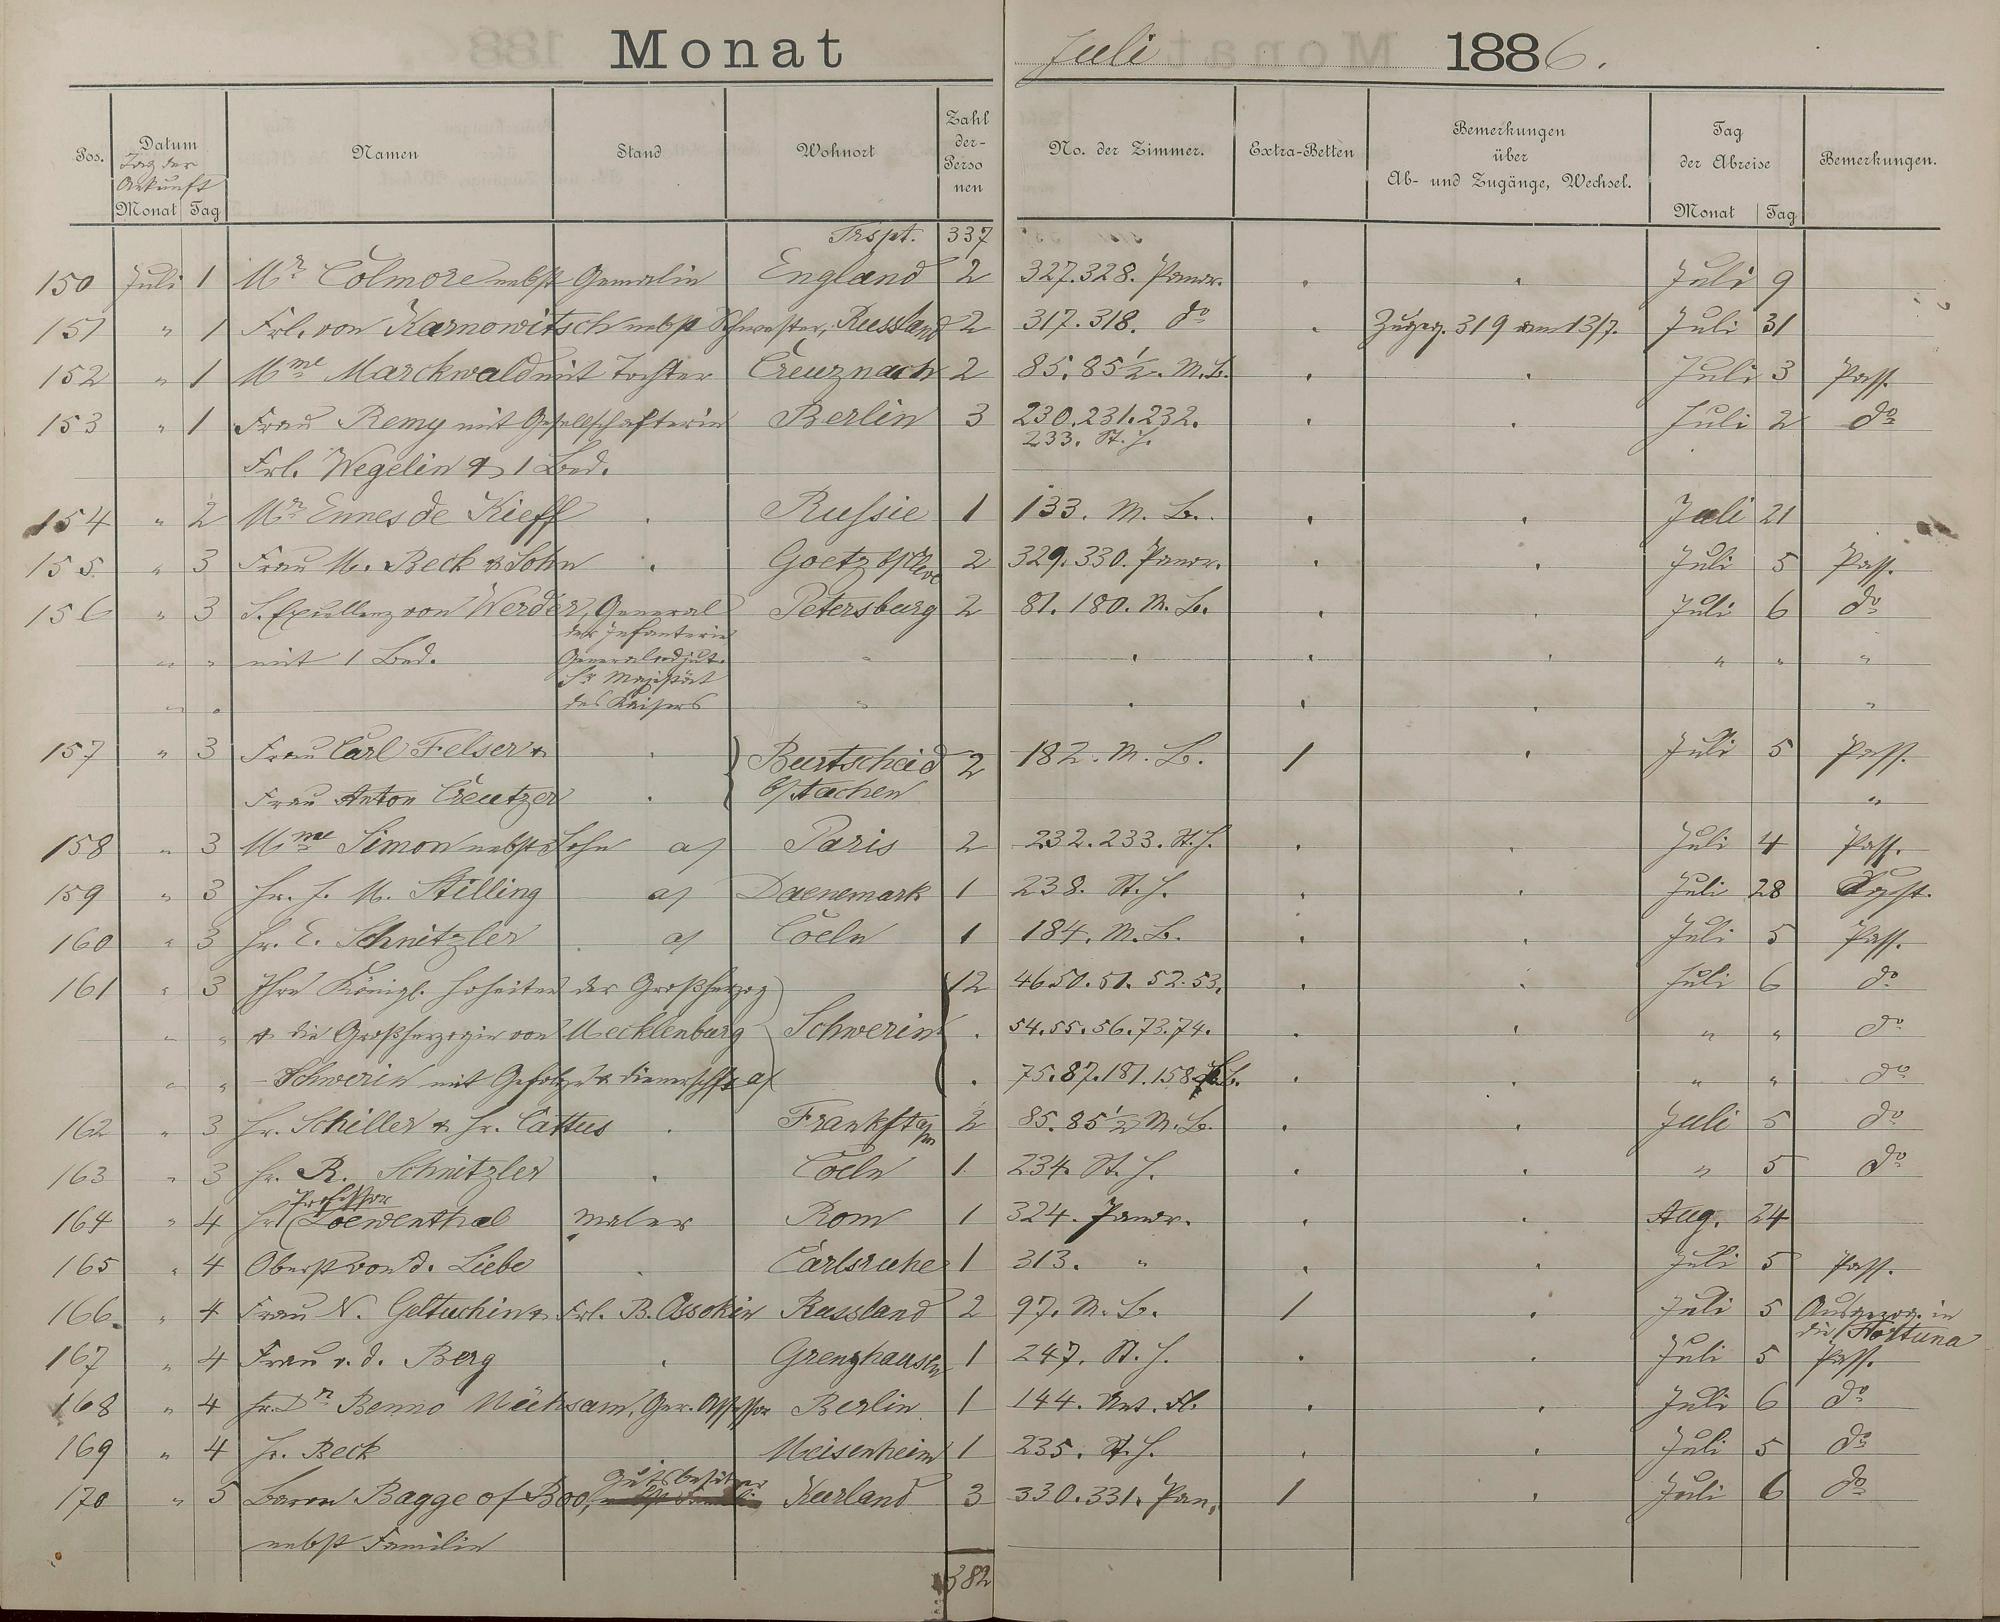 Monat Juli 1886.
Pos. Datum Namen Stand Wohnort Zahl der Personen No. der Zimmer. Extra-Betten Bemerkungen über Ab- und Zugänge, Wechsel. Tag der Abreise Bemerkungen.
Tag der Ankunft
Monat Tag Monat Tag
Trspt. 337
150 Juli 1 Mr Colmore nebst Gemalin England 2 327.328. Panor. Juli 9
151 " 1 Frl. von Karnowitsch nebst Schwester, Russland 2 317.318. do Zugeg. 319 am 13/7. Juli 31
152 " 1 Mme Marckwald mit Tochter Creuznach 2 85.85 1/2. M.B. Juli 3 Pass.
153 " 1 Frau Remy mit Gesellschafterin Berlin 3 230.231.232. Juli 2 do
233. St. H.
Frl. Wegelin & 1 Bed.
154 " 2 Mr Ennes de Kieff Russie 1 133. M. B. Juli 21
155 " 3 Frau M. Beck & Sohn Goetz b/Cleve 2 329.330. Panor. Juli 5 Pass.
156 " 3 S. Excellenz von Werder, General Petersburg 2 81.180. M. B. Juli 6 do
der Infanterie
" " mit 1 Bed. Generaladjut. " " " "
Sr Majestät
" " des Kaisers " "
157 " 3 Frau Carl Felser & Burtscheid 2 182. M. B. 1 Juli 5 Pass.
Frau Anton Creutzer b/Aachen "
158 " 3 Mme Simon nebst Sohn a/ Paris 2 232.233. St. H. Juli 4 Pass.
159 " 3 Hr. J. M. Stilling a/ Daenemark 1 238. St. H. Juli 28
160 " 3 Hr. E. Schnitzler a/ Coeln 1 184. M. B. Juli 5 Pass.
161 " 3 Ihre Königl. Hoheiten der Großherzog 12 46.50.51.52.53. Juli 6 do
" " & die Großherzogin von Mecklenburg Schwerin 54.55.56.73.74. " " do
" " Schwerin mit Gefolge & Dienerschft a/ 75.87.181.158 M.B. " " do
162 " 3 Hr. Schiller & Hr. Cattus Frankft a/m 2 85.85 1/2 M. B. Juli 5 do
163 " 3 Hr. R. Schnitzler Coeln 1 234. St. H. " 5 do
Professor
164 " 4 Hr. Loewenthal Maler Rom 1 324. Panor. Aug. 24
165 " 4 Oberst von d. Liebe Carlsruhe 1 313. " Juli 5 Pass.
166. " 4 Frau N. Galtuchin & Frl. B. Ossokin Russland 2 97. M. B. 1 Juli 5 Ausgezog. in
die Fortuna
167 " 4 Frau v. d. Berg Grenzhausen 1 247. St. H. Juli 5 Pass.
168 " 4 Hr. Dr Benno Mühsam, Ger. Assessor Berlin 1 144. Unt. Fl. Juli 6 do
169 " 4 Hr. Beck Meisenheim 1 235. St. H. Juli 5 do
Gutsbesitzer
170 " 5 Baron Bagge of Boo, Kurland 3 330.331. Pan. 1 Juli 6 do
nebst Familie
382